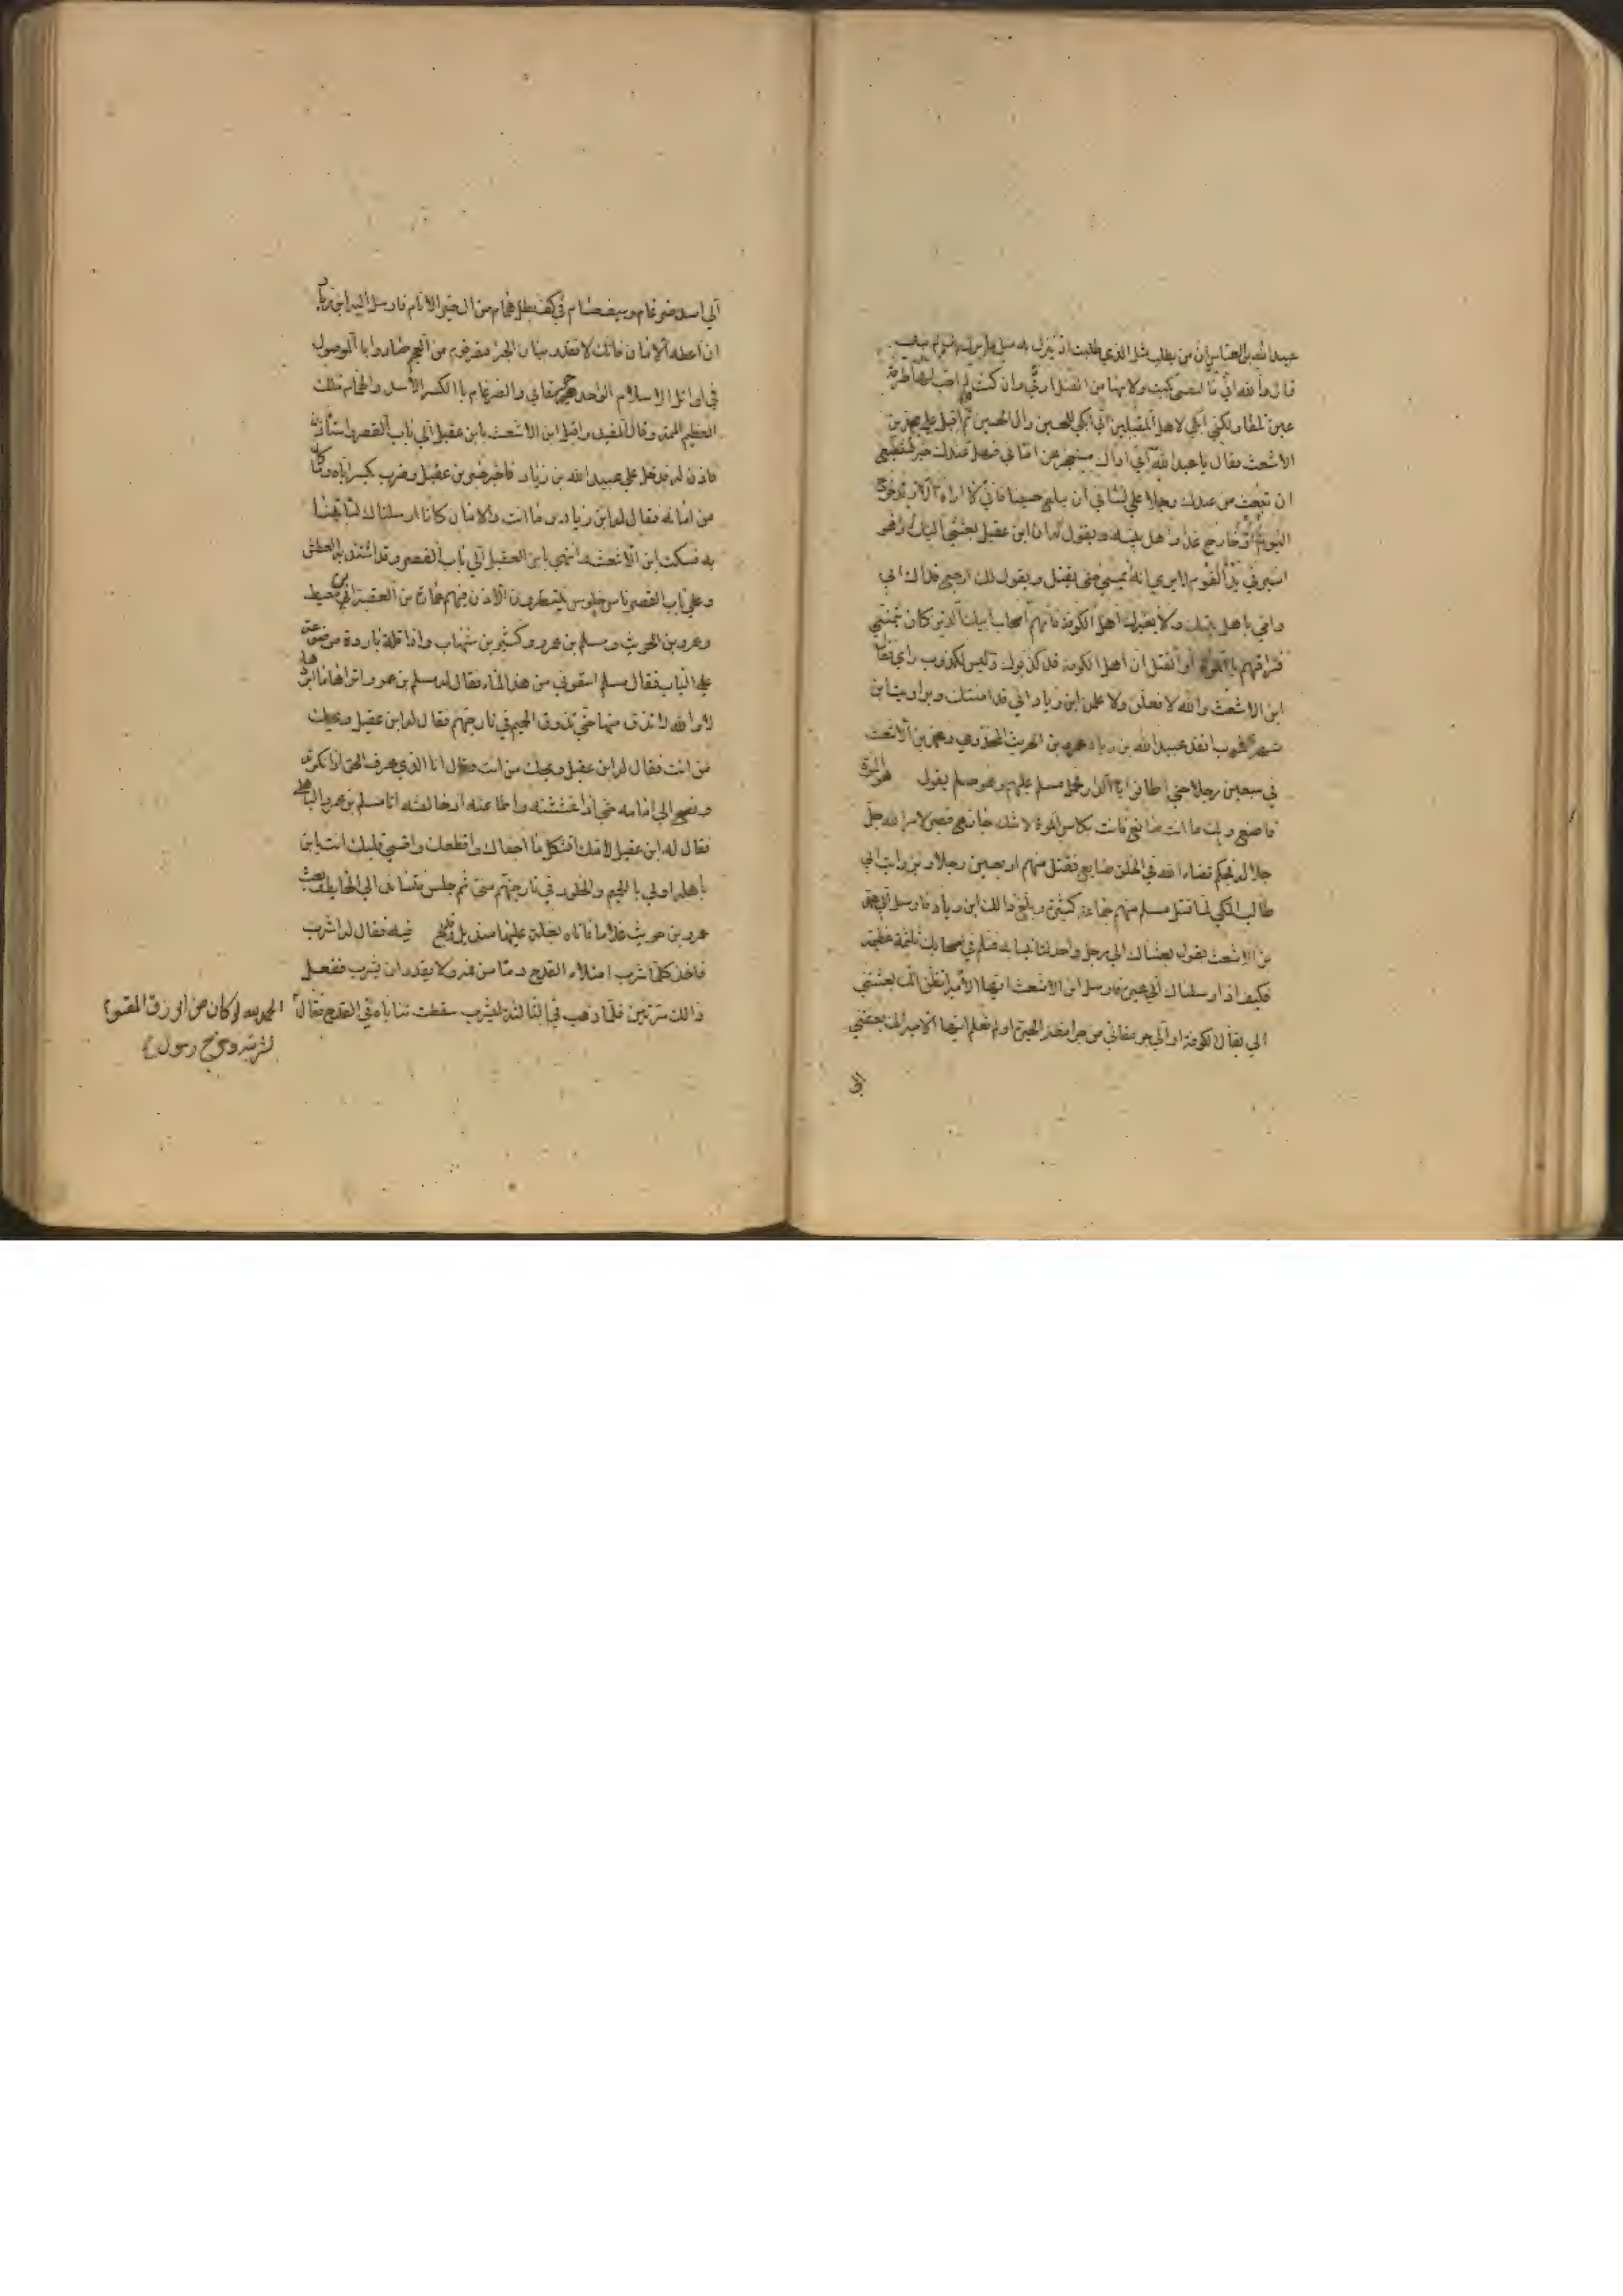 عبيد الله بن العباس ان من يطلب مثل الذي طلبت اذ ينزل به مثل ما نزل بك لم يبك
قال والله اني ما لنفسي بكيت ولا لها من القتل ارثي وان كنت لم احب لها طرفة
عين تلفا ولكني ابكي لاهلي المقبلين اني ابكي للحسين وال الحسين ثم اقبل علي محمد بن
الاشعث فقال يا عبد الله اني اراك ستعجز عن اماني فهل عندك خير تستطيع
ان تبعث من عندك رجلا علي لساني ان يبلغ حسينا فاني لا اراه الا وقد خرج
اليوم او خارج غدا واهل بيته ويقول له ان ابن عقيل بعثني اليك وهو
اسير في يد القوم لا يري انه يمسي حتي يقتل ويقول لك ارجع فداك ابي
وامي باهل بيتك ولا يغررك اهل الكوفة فانهم اصحاب ابيك الذين كان يتمني
فراقهم بالموت او القتل ان اهل الكوفة قد كذبوك وليس لكذوب راي فقال
ابن الاشعث والله لافعلن ولاعلمن ابن زياد اني قد امنتك وروي ابن
شهر اشوب انفذ عبيد الله بن زياد عمرو بن الحريث المخزومي ومحمد بن الاشعث
في سبعين رجلا حتي اطافوا بالدار فحمل مسلم عليهم وهو يقول هو الموت
فاصنع ويك ما انت صانع فانت بكاس الموت لا شك جارع فصبر لامر الله جل
جلاله فحكم قضاء الله في الخلق ضايع فقتل منهم اربعين رجلا وفي رواية ابي
طالب المكي لما قتل مسلم منهم جماعة كثيرة وبلغ ذالك ابن زياد فارسل الي محمد
بن الاشعث يقول بعثناك الي رجل واحد لتاتينا به فثلم في اصحابك ثلمة عظيمة
فكيف اذا ارسلناك الي غيره فارسل ابن الاشعث ايها الامير اتظن انك بعثتني
الي بقال الكوفة او الي جرمقاني من جرامقة الحيرة اولم تعلم ايها الامير انك بعثتني
الي
الي اسد ضرغام وسيف حسام في كف بطل همام من ال خير الانام فارسل اليه ابن زياد
ان اعطه الامان فانك لا تقدر عليه الا به بيان الجرامقة قوم من العجم صاروا بالموصل
في اوائل الاسلام الواحد جرمقاني والضرغام بالكسر الاسد والهمام الملك
العظيم الهمة وقال المفيد واقبل ابن الاشعث بابن عقيل الي باب القصر استاذن
فاذن له فدخل علي عبيد الله بن زياد فاخبره خبر بن عقيل وضرب بكير اياه وما كان
من امانه فقال له ابن زياد وما انت والامان كانا ارسلناك لتاتينا
به فسكت ابن الاشعث وانتهي بابن العقيل الي باب القصر وقد اشتد به العطش
وعلي باب القصر ناس جلوس ينتظرون الاذن فيهم عمارة بن العقبة بن ابي معيط
وعمرو بن الحريث ومسلم بن عمرو وكثير بن شهاب واذا قلة باردة موضوعة
علي الباب فقال مسلم اسقوني من هذا الماء فقال له مسلم بن عمرو اتراها ما ابردها
لا والله لا تذوق منها حتي تذوق الحميم في نار جهنم فقال له ابن عقيل ويحك
من انت فقال له ابن عقيل ويحك من انت فقال انا الذي عرف الحق اذ انكرته
ونصح الي امامه حتي اذ غششته واطاعه اذ خالفته انا مسلم بن عمرو الباهلي
فقال له ابن عقيل لامك الثكل ما اجفاك واقطعك واقسي قلبك انت يابن
باهلة اولي بالحميم والخلود في نار جهنم مني ثم جلس يتساند الي الحايط فبعث
عمرو بن حريث غلاما فاتاه بقلة عليها منديل وقدح فيه فقال له اشرب
فاخذ كلما شرب امتلاء القدح دما من فمه ولا يقدر ان يشرب ففعل
ذالك مرتين فلما ذهب في الثالثة ليشرب سقطت ثناياه في القدح فقال
الحمد لله لو كان من الرزق المقسوم
لشربته وخرج رسول